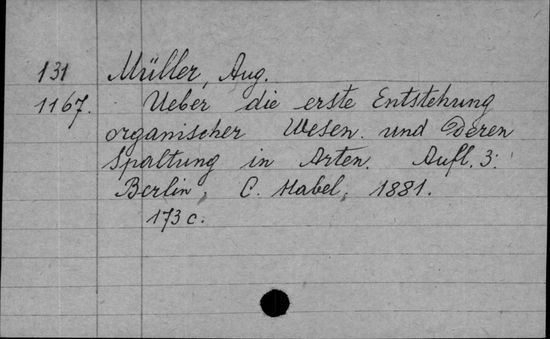 131 Müller, Aug.
1167. Ueber die erste Entstehung
organischer Wesen und Deren
Spaltung in Arten. Aufl. 3.
Berlin, C. Habel, 1881.
173 c.